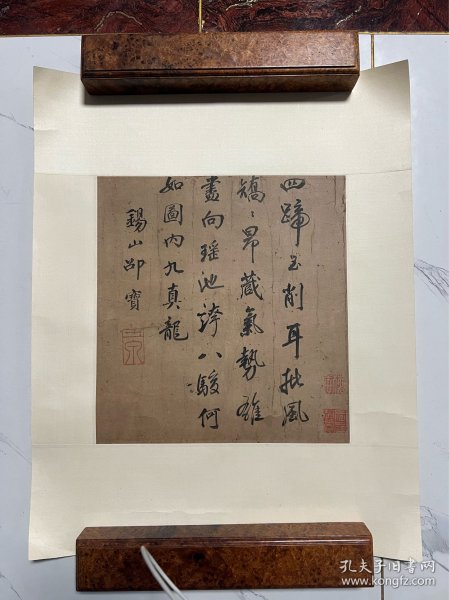 四蹄玉削耳批風
矯〻昂藏氣勢雄
盡向瑶池誇八駿何
如圖内九真龍
錫山邵寶
孔夫子旧书网
www.kongfz.com